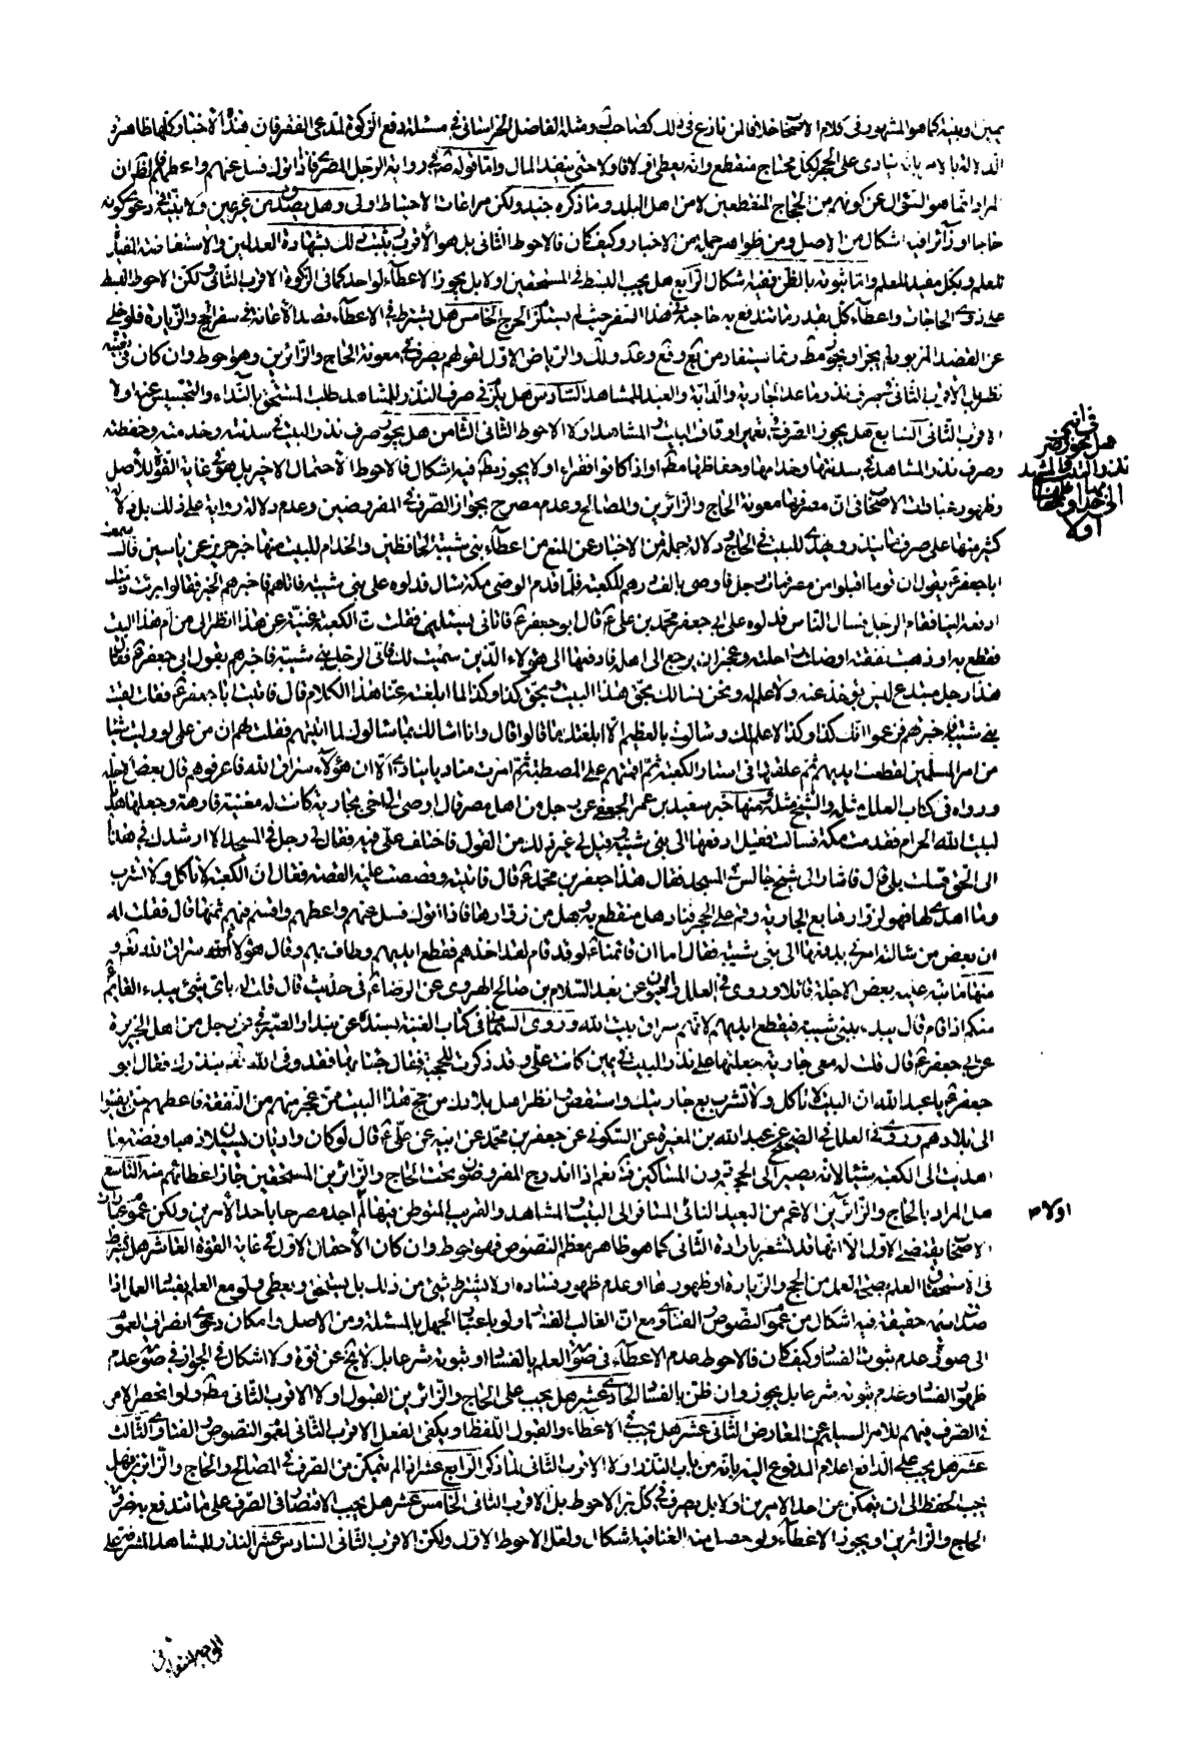 يمين وبينة كما هو المشهور فى كلام الاصحاب خلافا لمن نازع فى ذلك كصاحب ومثله الفاضل الخراسانى فى مسئلة دفع الزكوة لمدعى الفقر فان هذه الاخبار كلها ظاهرة
الدلالة بانه ينادى على الحجر لكل محتاج منقطع وانه يعطى اولا فاولا حتى ينفد المال واما قوله فى رواية الرجل المصرى فاذا اتوك فسل عنهم واعطهم فالظ ان
المراد انما هو السؤال عن كونهم من الحجاج المنقطعين لا من اهل البلد وما ذكره جيد ولكن مراعات الاحتياط اولى وهل يصدق من غير يمين ولا بينة فى دعوى كونه
حاجا او زائرا فيه اشكال من الاصل ومن ظواهر جملة من الاخبار وكيف كان فالاحوط الثانى بل هو الاقرب يثبت ذلك بشهادة العدلين والاستفاضة المفيدة
للعلم وبكل مفيد للعلم واما ثبوته بالظن ففيه اشكال الرابع هل يجب البسط فى المستحقين او لا بل يجوز الاعطاء لواحد كما فى الزكوة الاقرب الثانى لكن الاحوط البسط
على ذوى الحاجات واعطاء كل بقدر ما تندفع به حاجته فى هذا السفر حيث لم يستلزم الحرج الخامس هل يشترط فى الاعطاء قصد الاعانة فى سفر الحج والزيارة فلو خلى
عن القصد المزبور لم يجز او يجوز مط ربما يستفاد من والرياض الاول لقولهم يصرف فى معونة الحاج والزائرين وهو احوط وان كان فى تعينه
نظر بل الاقرب الثانى فى صرف نذر ما عدا الجارية والدابة والعبد للمشاهد السادس هل يلزم فى صرف النذر للمشاهد طلب المستحق بالنداء والتجسس عنه او لا
الاقرب الثانى السابع هل يجوز الصرف فى تعمير اوقاف البيت والمشاهد او لا الاحوط الثانى الثامن هل يجوز صرف نذر البيت فى سدنته وخدمته وحفظته
وصرف نذر المشاهد فى سدنتها وخدامها وحفاظها مط او اذا كانوا فقراء او لا يجوز مط فيه اشكال فالاحوط الاحتمال الاخير بل هو فى غاية القوة للاصل
وظهور عبارات الاصحاب فى ان مصرفها معونة الحاج والزائرين والمصالح وعدم مصرح بجواز الصرف فى المفروضين وعدم دلالة رواية على ذلك بل دلالة
كثير منها على صرف ما ينذر ويهدى للبيت فى الحاج ودلالة جملة من الاخبار عن المنع من اعطاء بنى شيبة الحافظين والخدام للبيت منها خبر حريز عن ياسين قال سمعت
ابا جعفر ع يقول ان قوما اقبلوا من مصر فمات رجل فاوصى بالف درهم للكعبة فلما قدم الوصى مكة سال فدلوه على بنى شيبة فاتاهم فاخبرهم الخبر فقالوا برئت ذمتك
ادفعه الينا فقام الرجل فسال الناس فدلوه على ابى جعفر محمد بن على ع قال ابو جعفر ع فاتانى يسئلنى فقلت ان الكعبة غنية عن هذا انظر الى من ام هذا البيت
فقطع به او ذهبت نفقته او ضلت راحلته وعجز ان يرجع الى اهله فادفعها الى هؤلاء الذين سميت لك فاتى الرجل بنى شيبة فاخبرهم بقول ابى جعفر ع فقالوا
هذا رجل مبتدع ليس يؤخذ عنه ولا علم له ونحن نسالك بحق هذا البيت وبحق كذا وكذا لما ابلغته عنا هذا الكلام قال فاتيت ابا جعفر ع فقلت لقيت
بنى شيبة فاخبرتهم فزعموا انك كذا وكذا لا علم لك وسالونى بالعظيم الا ابلغتك ما قالوا قال وانا اسالك بما سالوك لما اتيتهم فقلت لهم ان من علمى لو وليت شيئا
من امر المسلمين لقطعت ايديهم ثم علقتها فى استار الكعبة ثم اقمتهم على المصطبة ثم امرت مناديا ينادى الا ان هؤلاء سراق الله فاعرفوهم قال بعض الاجلة
ورواه فى كتاب العلل مثله والشيخ مثله ومنها خبر سعيد بن عمر الجعفى عن رجل من اهل مصر قال اوصى الى اخى بجارية كانت له مغنية فارهة وجعلها هديا
لبيت الله الحرام فقدمت مكة فسالت فقيل ادفعها الى بنى شيبة وقيل لى غير ذلك من القول فاختلف على فيه فقال لى رجل فى المسجد الا ارشدك فى هذا
الى الحق قلت بلى قال فاشار الى شيخ جالس فى المسجد فقال هذا جعفر بن محمد ع قال فاتيته وقصصت عليه القصة فقال ان الكعبة لا تاكل ولا تشرب
وما اهدى لها فهو لزوارها بع الجارية وقم على الحجر فناد هل منقطع به وهل من زوارها فاذا اتوك فسل عنهم واعطهم واقسم فيهم ثمنها قال فقلت له
ان بعض من سالته امرنى بدفعها الى بنى شيبة فقال اما ان قائمنا لو قد قام لقد اخذهم فقطع ايديهم وطاف بهم وقال هؤلاء سراق الله تعالى و
منها ما نبه عليه بعض الاجلة قائلا وروى فى العلل والعيون عن عبد السلام بن صالح الهروى عن الرضا ع فى حديث قال قلت له باى شىء يبدء القائم ع
منكم اذا قام قال يبدء ببنى شيبة فيقطع ايديهم لانهم سراق بيت الله وروى النعمانى فى كتاب الغيبة بسنده عن بندار الصيرفى عن رجل من اهل الجزيرة
عن ابى جعفر ع قال قلت له معى جارية جعلتها على نذرا لبيت فى يمين كانت على وقد ذكرت للحجبة فقالوا جئنا بها فقد وفى الله بنذرك فقال ابو
جعفر ع يا عبد الله ان البيت لا تاكل ولا تشرب بع جاريتك واستقص انظر اهل بلادك من حج هذا البيت فمن عجز منهم من النفقة فاعطهم حتى يفيئوا
الى بلادهم وروى فى العلل فى الصحيح عن عبد الله بن المغيرة عن السكونى عن جعفر بن محمد عن ابيه عن على ع قال لو كان واديان يسيلان ذهبا وفضة ما
اهديت الى الكعبة شيئا لانه يصير الى الحجبة دون المساكين نعم اذا اندرج المفروضون تحت الحاج والزائرين المستحقين جاز اعطائهم منه التاسع
هل المراد بالحاج والزائرين الاعم من البعيد النائى المسافر الى البيت والمشاهد والقريب المتوطن فيها لم اجد مصرحا باحد الامرين ولكن عموم عبارات
الاصحاب يقتضى الاول الا انها قد تشعر بارادة الثانى كما هو ظاهر معظم النصوص فهو احوط وان كان الاحتمال الاول فى غاية القوة العاشر هل يشترط
فى الاستحقاق العلم بصحة العمل من الحج والزيارة او ظهورها او عدم ظهور فساده او لا يشترط شىء من ذلك بل يستحق ويعطى ولو مع العلم بفساد العمل اذا
صدق اسمه حقيقة فيه اشكال من عموم النصوص والفتاوى مع ان الغالب الفساد ولو باعتبار الجهل بالمسئلة ومن الاصل وامكان دعوى انصراف العموم
الى صورة عدم ثبوت الفساد وكيف كان فالاحوط عدم الاعطاء فى صورة العلم بالفساد او ثبوته شرعا بل لا يخ عن قوة ولا اشكال فى الجواز فى صورة عدم
ظهور الفساد وعدم ثبوته شرعا بل يجوز وان ظن بالفساد الحادى عشر هل يجب على الحاج والزائرين القبول او لا الاقرب الثانى مط ولو انحصر الامر
فى الصرف فيهم للامر السليم عن المعارض الثانى عشر هل يجب فى الاعطاء والقبول اللفظ او يكفى الفعل الاقرب الثانى لعموم النصوص والفتاوى الثالث
عشر هل يجب على الدافع اعلام المدفوع اليه بانه من باب النذر او لا الاقرب الثانى لما ذكر الرابع عشر اذا لم يتمكن من الصرف فى المصالح والحاج والزائرين فهل
يجب الحفظ الى ان يتمكن من احد الامرين او لا بل يصرف فى كل بر الاحوط بل الاقرب الثانى الخامس عشر هل يجب الاقتصار فى الصرف على ما تندفع به ضرورة
الحاج والزائرين او يجوز الاعطاء ولو حصل منه الغنا فيه اشكال ولعل الاحوط الاول ولكن الاقرب الثانى السادس عشر النذر للمشاهد المشرفة على
فى انه
هل يجوز صرف
نذر البيت والمشهد
الى خدامها وحفاظها
او لا
او لا